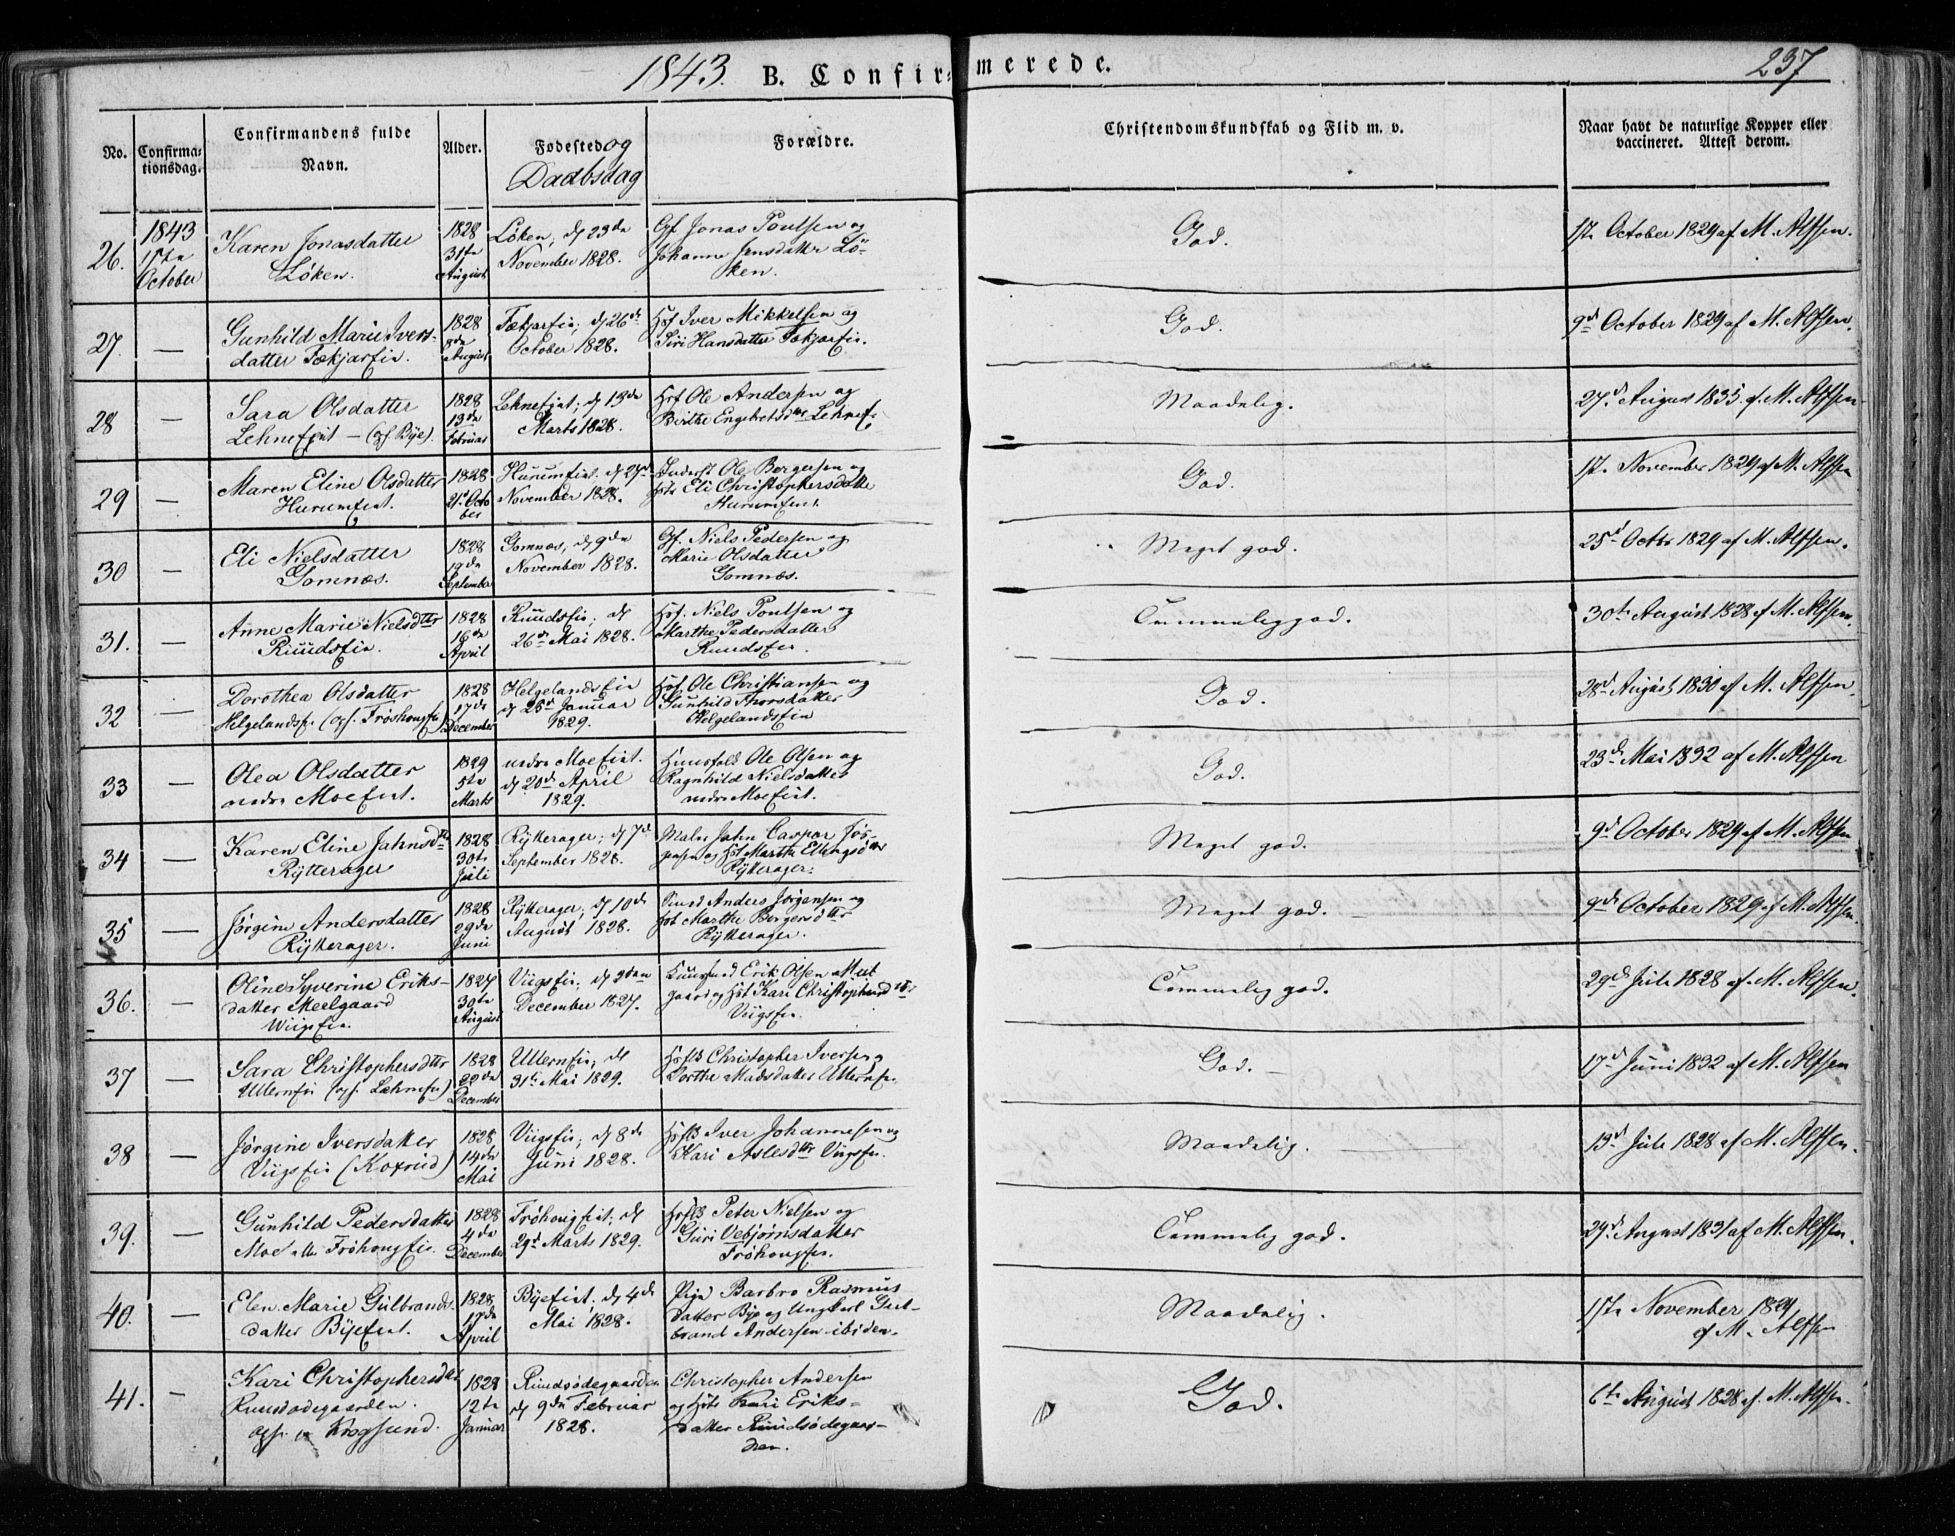 1843. B. Confirmerede. 237
No. Confirma-tionsdag. Confirmandens fulde Navn. Alder. Fødested og Daabsdag Forældre. Christendomskundskab og Flid m. v. Naar havt de naturlige Kopper eller vaccineret. Attest derom.
26. 1843 1ste October
Karen Jonasdatter
Løken.
1828 31te August
Løken, d 23de
November 1828.
Gf Jonas Poulsen og
Johanne Jensdatter Lö-
ken.
God.
1ste October 1829 af M. Alfsen.
27. —
Gunhild Marie Ivers-
datter Tækjarfie.
1828 8de August
Tækjarfie; d 26de
October 1828.
Hsf Iver Mikkelsen og
Siri Hansdatter Tækjarfie.
God.
9d October 1829 af M. Alfsen.
28 —
Sara Olsdatter
Lehnefiet — (opf Bÿe)
1828 13de Februar
Lehnefiet; d 13de
Marts 1828.
Hsf Ole Andersen og
Berthe Engebretsdtr Lehnefi
Maadelig.
27d August 1835. af M. Alfsen
29 —
Maren Eline Olsdatter
Hurumfiet.
1828 21d October
Hurumfiet. d 27d
November 1828.
Inderst Ole Bergersen og
Hst Eli Christophersdatter
Hurumfiet.
God.
17de November 1829 af M. Alfsen
30 —
Eli Nielsdatter
Gomnæs.
1828 19de September
Gomnæs, d 9de
November 1828.
Gf. Niels Pedersen og
Marie Olsdatter
Gomnæs.
Meget god.
25d Octbr 1829 af M. Alfsen.
31. —
Anne Marie Nielsdtr
Ruudsfie.
1828 16de April
Ruudsfie; d
26de Mai 1828.
Hsf. Niels Poulsen og
Marthe Pedersdatter
Ruudsfie.
Temmelig god.
30te August 1828 af M. Alfsen.
32 —
Dorothea Olsdatter
Helgelandsfie (opf. Frøshougfie)
1828 17de December
Helgelandsfie
d 25d Januar
1829.
Hsf Ole Christiansen og
Gunhild Thorsdatter
Helgelandsfie
God.
28d August 1830 af M. Alfsen.
33 —
Olea Olsdatter
nedre Moefiet.
1829 5te Marts
nedre Moefiet.
d 20de April
1829.
Huusfolk Ole Olsen og
Ragnhild Nielsdatter
nedre Moefiet.
God.
23d Mai 1832 af M. Alfsen
34 —
Karen Eline Jahnsdtr
Rÿtterager
1828 30te Juli
Rÿtterager; d 7de
September 1828.
Maler Jahn Caspar Jör-
gensen og Hst Marthe Ellingsdtr
Rÿtterager.
Meget god.
9d October 1829 af M. Alfsen
35 —
Jørgine Andersdatter
Rÿtterager.
1828 29de Juni
Rÿtterager; d 10de
August 1828.
Anders Jørgensen og
Hst Marthe Bergersdtr
Rÿtterager.
Meget god. —
9d October 1829 af M. Alfsen.
36. —
Oline Syverine Eriks-
datter Meelgaard
Wiigsfie.
1827 30te August
Viigsfie; d 9den
December 1827.
Erik Olsen Meel
gaard og Hst Kari Christophersdtr
Viigsfie.
Temmelig god.
29d Juli 1828 af M. Alfsen.
37 —
Sara Christophersdtr
Ullernfie (opf. Lehnefie)
1828 22de December
Ullernfie; d
31te Mai 1829.
Hsflk Christopher Iversen og
Dorthe Madsdatter Ullernfie.
God. —
17d Juni 1832 af M. Alfsen
38 —
Jørgine Iversdatter
Viigsfie (Koxrud)
1828 14de Mai
Viigsfie; d 8de
Juni 1828.
Hsflk Iver Johannesen og
Kari Aslesdtr Viigsfie.
Maadelig. —
13d Juli 1828 af M. Alfsen.
39. —
Gunhild Pedersdatter
Moe eller Fröhougfie.
1828 4de December
Fröhougfiet; d
29d Marts 1829.
Hsflk Peter Nielsen og
Guri Vebjørnsdatter
Fröhougfie.
Temmelig god.
29d August 1831 af M. Alfsen.
40. —
Elen Marie Gulbrands-
datter Bÿefiet.
1828 17de April
Bÿefiet. d 4de
Mai 1828.
Pige Barbro Rasmus
datter Bÿe og Ungkarl Gul-
brand Andersen ibiden.
Maadelig.
17de November 1829
af M. Alfsen
41. —
Kari Christophersdtr
Ruudsödegaarden.
opf. p Krogsund.
1828 12te Januar
Ruudsödegaarden
d 9de Februar
1828.
Christopher Andersen
og Hst Kari Eriks-
datter Ruudsödegaar-
den.
God.
6te August 1828 af M. Alfsen.